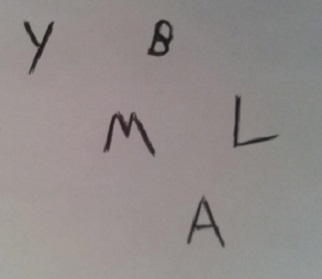 Y B
M L
A